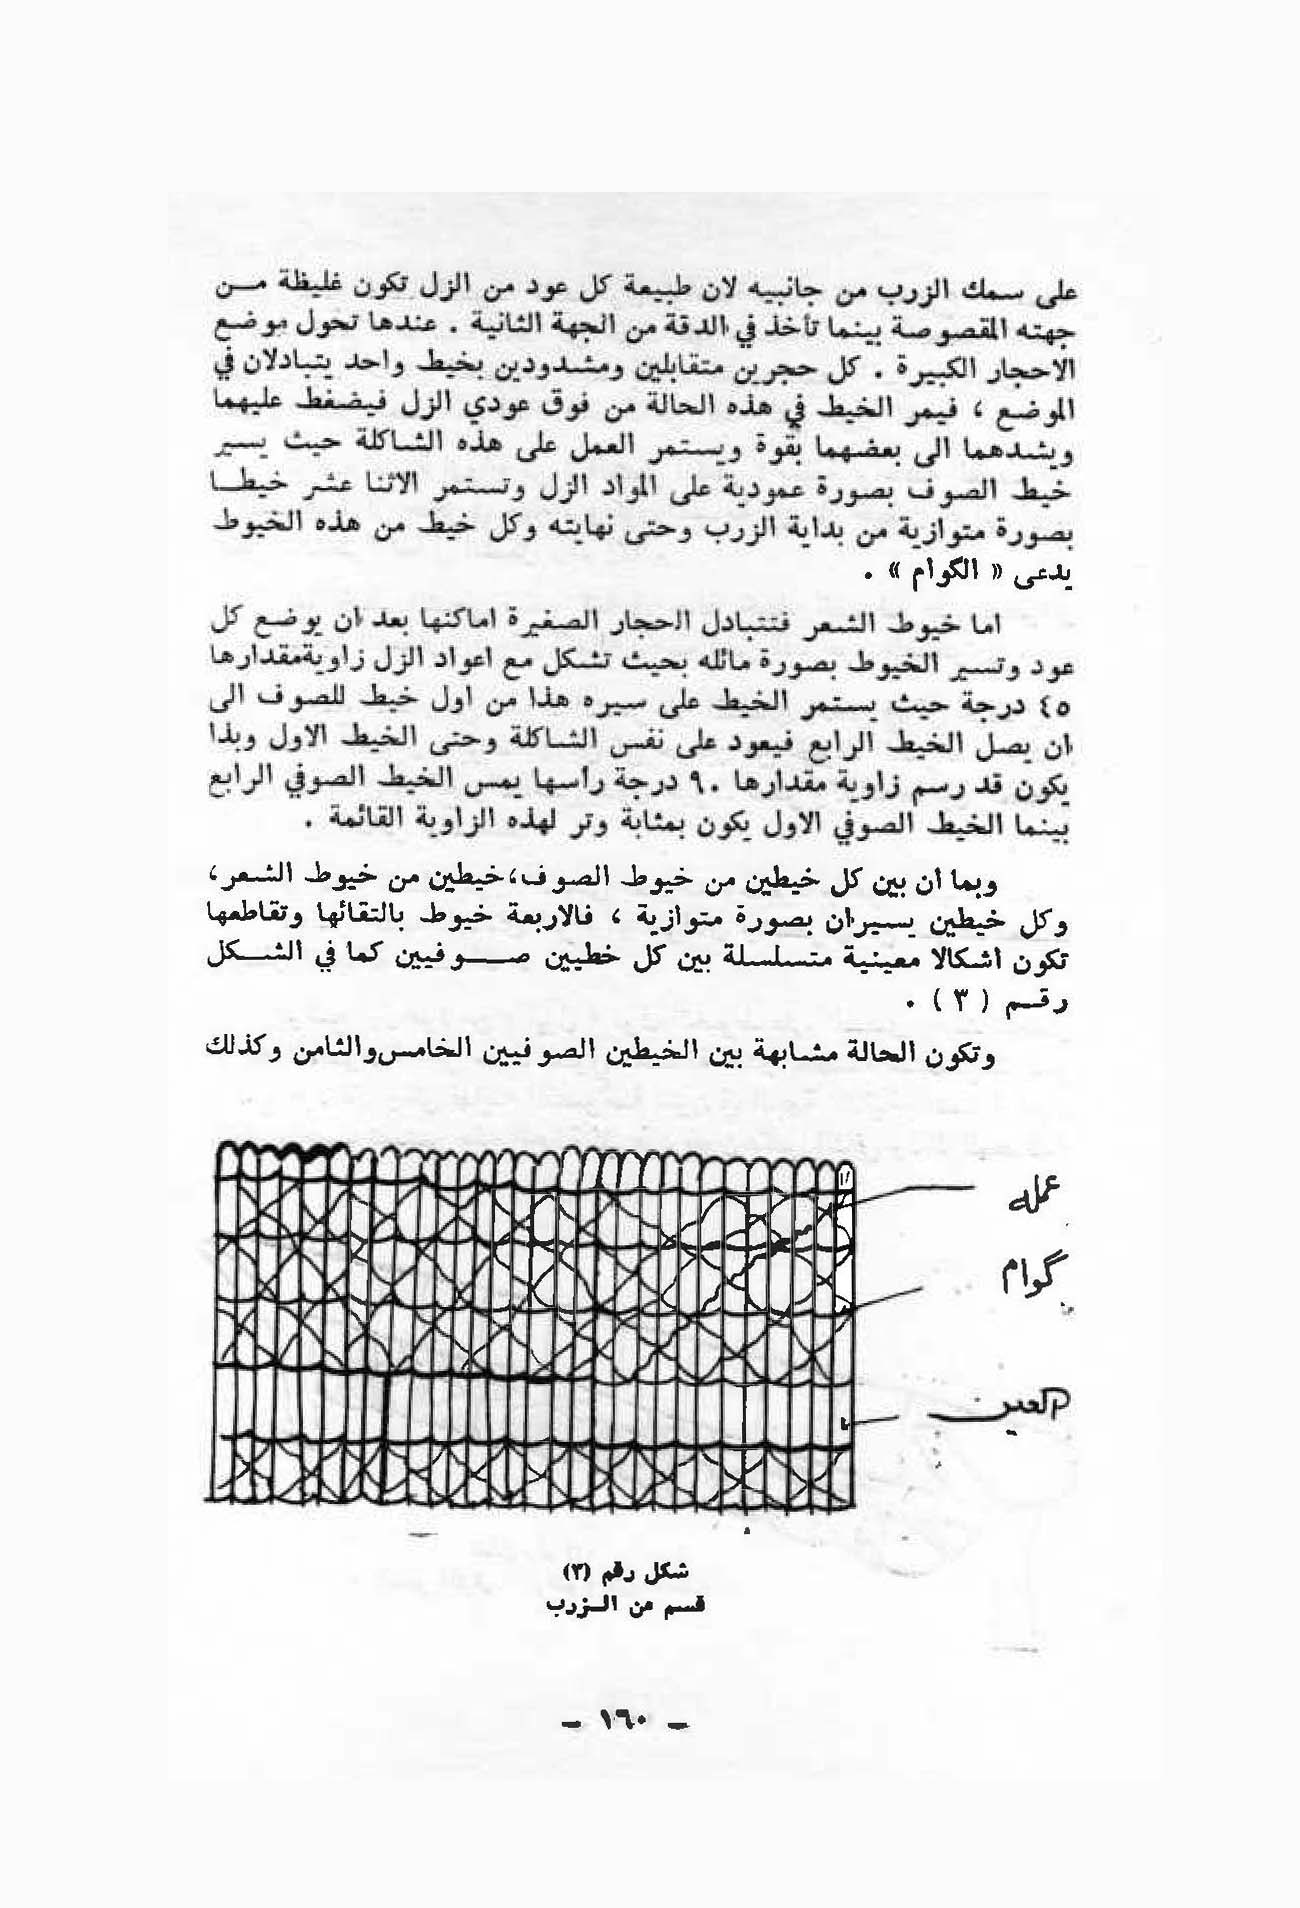 على سمك الزرب من جانبيه لان طبيعة كل عود من الزل تكون غليظة مــن
جهته المقصوصة بينما تأخذ في الدقة من الجهة الثانية . عندها تحول موضع
الاحجار الكبيرة . كل حجرين متقابلين ومشدودين بخيط واحد يتبادلان في
الموضع ، فيمر الخيط في هذه الحالة من فوق عودي الزل فيضغط عليهما
ويشدهما الى بعضهما بقوة ويستمر العمل على هذه الشاكلة حيث يسير
خيط الصوف بصورة عمودية على المواد الزل وتستمر الاثنا عشر خيطــا
بصورة متوازية من بداية الزرب وحتى نهايته وكل خيط من هذه الخيوط
يدعى « الگوام » .
اما خيوط الشعر فتتبادل الحجار الصغيرة اماكنها بعد ان يوضع كل
عود وتسير الخيوط بصورة مائله بحيث تشكل مع اعواد الزل زاويةمقدارها
٤٥ درجة حيث يستمر الخيط على سيره هذا من اول خيط للصوف الى
ان يصل الخيط الرابع فيعود على نفس الشاكلة وحتى الخيط الاول وبذا
يكون قد رسم زاوية مقدارها ٩٠ درجة رأسها يمس الخيط الصوفي الرابع
بينما الخيط الصوفي الاول يكون بمثابة وتر لهذه الزاوية القائمة .
وبما ان بين كل خيطين من خيوط الصوف،خيطين من خيوط الشعر،
وكل خيطين يسيران بصورة متوازية ، فالاربعة خيوط بالتقائها وتقاطعها
تكون اشكالا معينية متسلسلة بين كل خطيين صـــوفيين كما في الشــكل
رقـم ( ٣ ) .
وتكون الحالة مشابهة بين الخيطين الصوفيين الخامس والثامن وكذلك
عمله
گوام
العين
شكل رقم (٣)
قسم من الـزرب
– ١٦٠ –